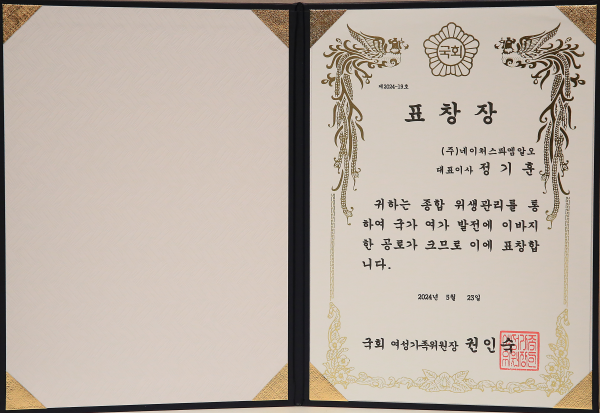 국회
제2024-13호
표 창 장
(주)네이처스팜엠알오
대표이사 정 기 훈
귀하는 종합 위생관리를 통
하여 국가 여가 발전에 이바지
한 공로가 크므로 이에 표창합
니다.
2024년 5월 23일
국회 여성가족위원장 권인숙